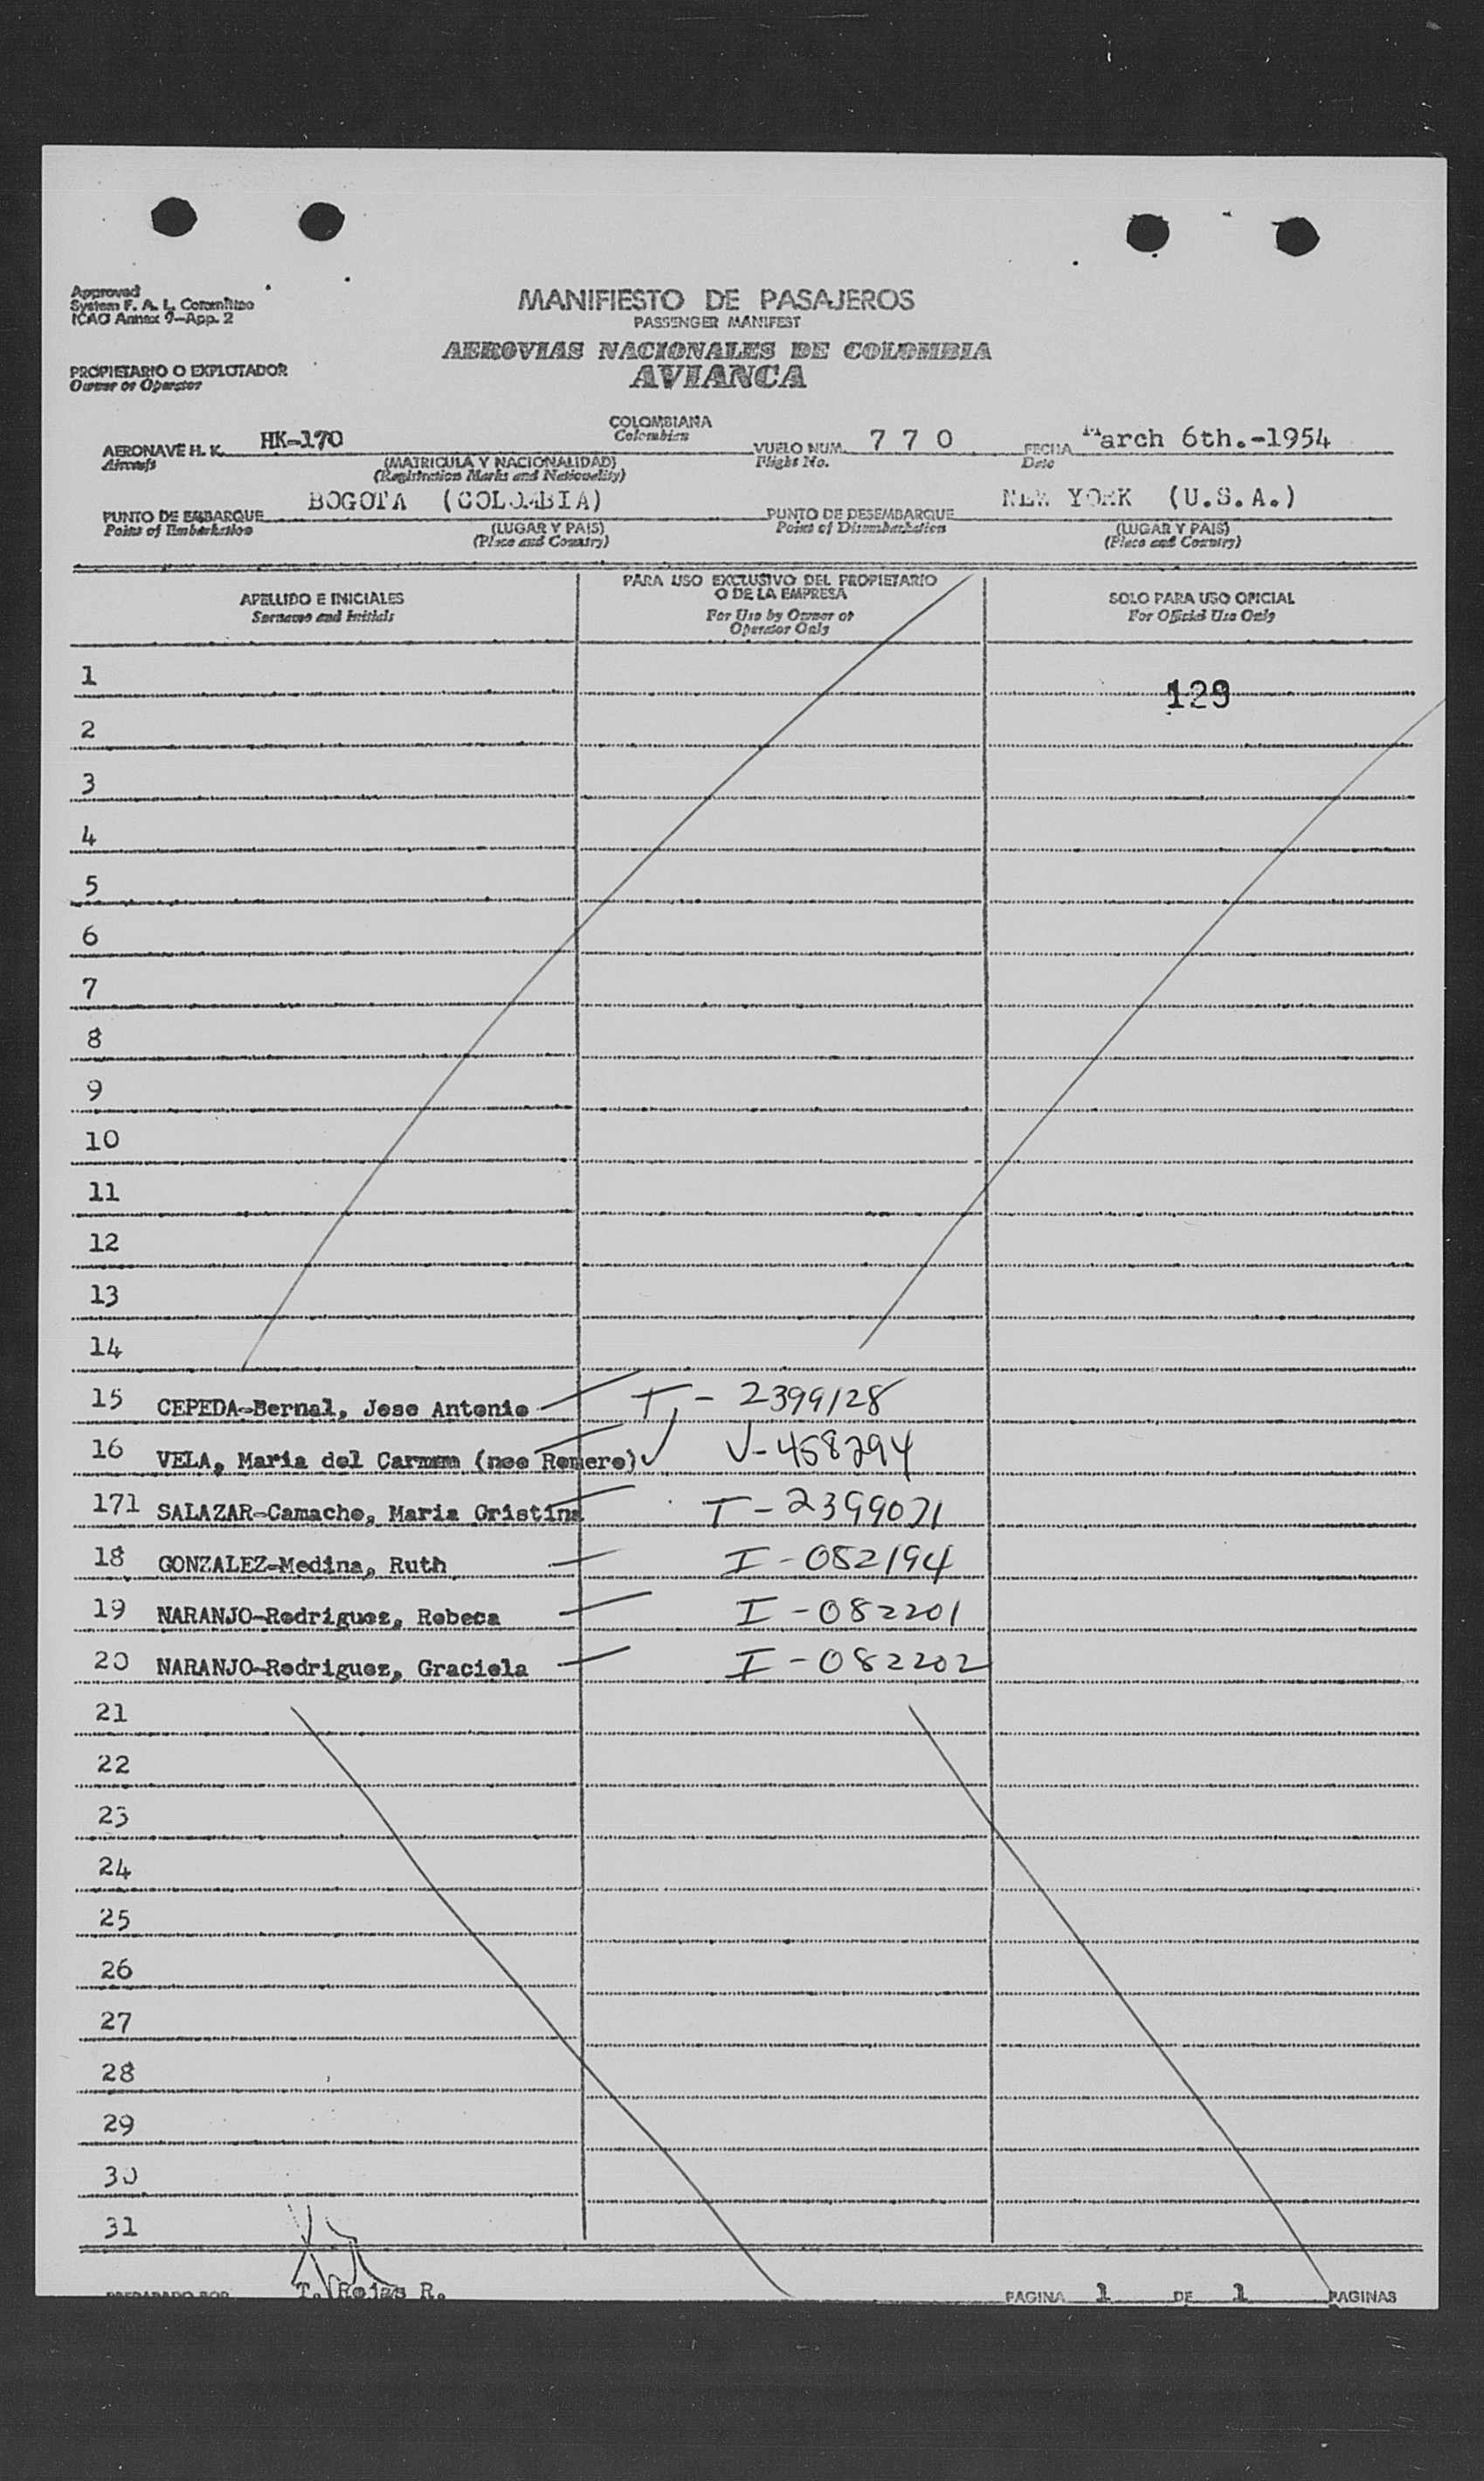 Approved
System F. A. L. Committee
ICAO Annex 9-App. 2
MANIFIESTO DE PASAJEROS
PASSENGER MANIFEST
AEROVIAS NACIONALES DE COLOMBIA
AVIANCA
PROPIETARIO O EXPLOTADOR
Owner or Operator
AERONAVE H. K. HK-170 COLOMBIANA VUELO NUM. 7 7 0 FECHA March 6th.-1954
Aircraft (MATRICULA Y NACIONALIDAD) Colombian Flight No. Date
(Registration Marks and Nationality)
PUNTO DE EMBARQUE BOGOTA (COLOMBIA) PUNTO DE DESEMBARQUE NEW YORK (U.S.A.)
Point of Embarkation (LUGAR Y PAIS) Point of Disembarkation (LUGAR Y PAIS)
(Place and Country) (Place and Country)
APELLIDO E INICIALES
Surname and Initials
PARA USO EXCLUSIVO DEL PROPIETARIO
O DE LA EMPRESA
For Use by Owner or
Operator Only
SOLO PARA USO OFICIAL
For Official Use Only
1 129
2
3
4
5
6
7
8
9
10
11
12
13
14
15 CEPEDA-Bernal, Jose Antonio T - 2399128
16 VELA, Maria del Carmen (nee Romero) V-458294
171 SALAZAR-Camacho, Maria Cristina T-2399071
18 GONZALEZ-Medina, Ruth I-082194
19 NARANJO-Rodriguez, Rebeca I-082201
20 NARANJO-Rodriguez, Graciela I-082202
21
22
23
24
25
26
27
28
29
30
31
PREPARADO POR T. Rojas R. PAGINA 1 DE 1 PAGINAS